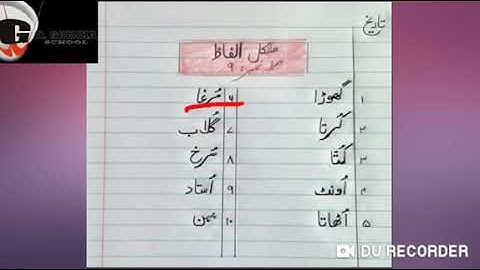 SCHOOL
تاریخ
مشکل الفاظ
۱ گھوڑا
۲ کُرتا
۳ کُتّا
۴ اُونٹ
۵ اُٹھاتا
۶ مُرغا
۷ گُلاب
۸ سُرخ
۹ اُستاد
۱۰
DU RECORDER